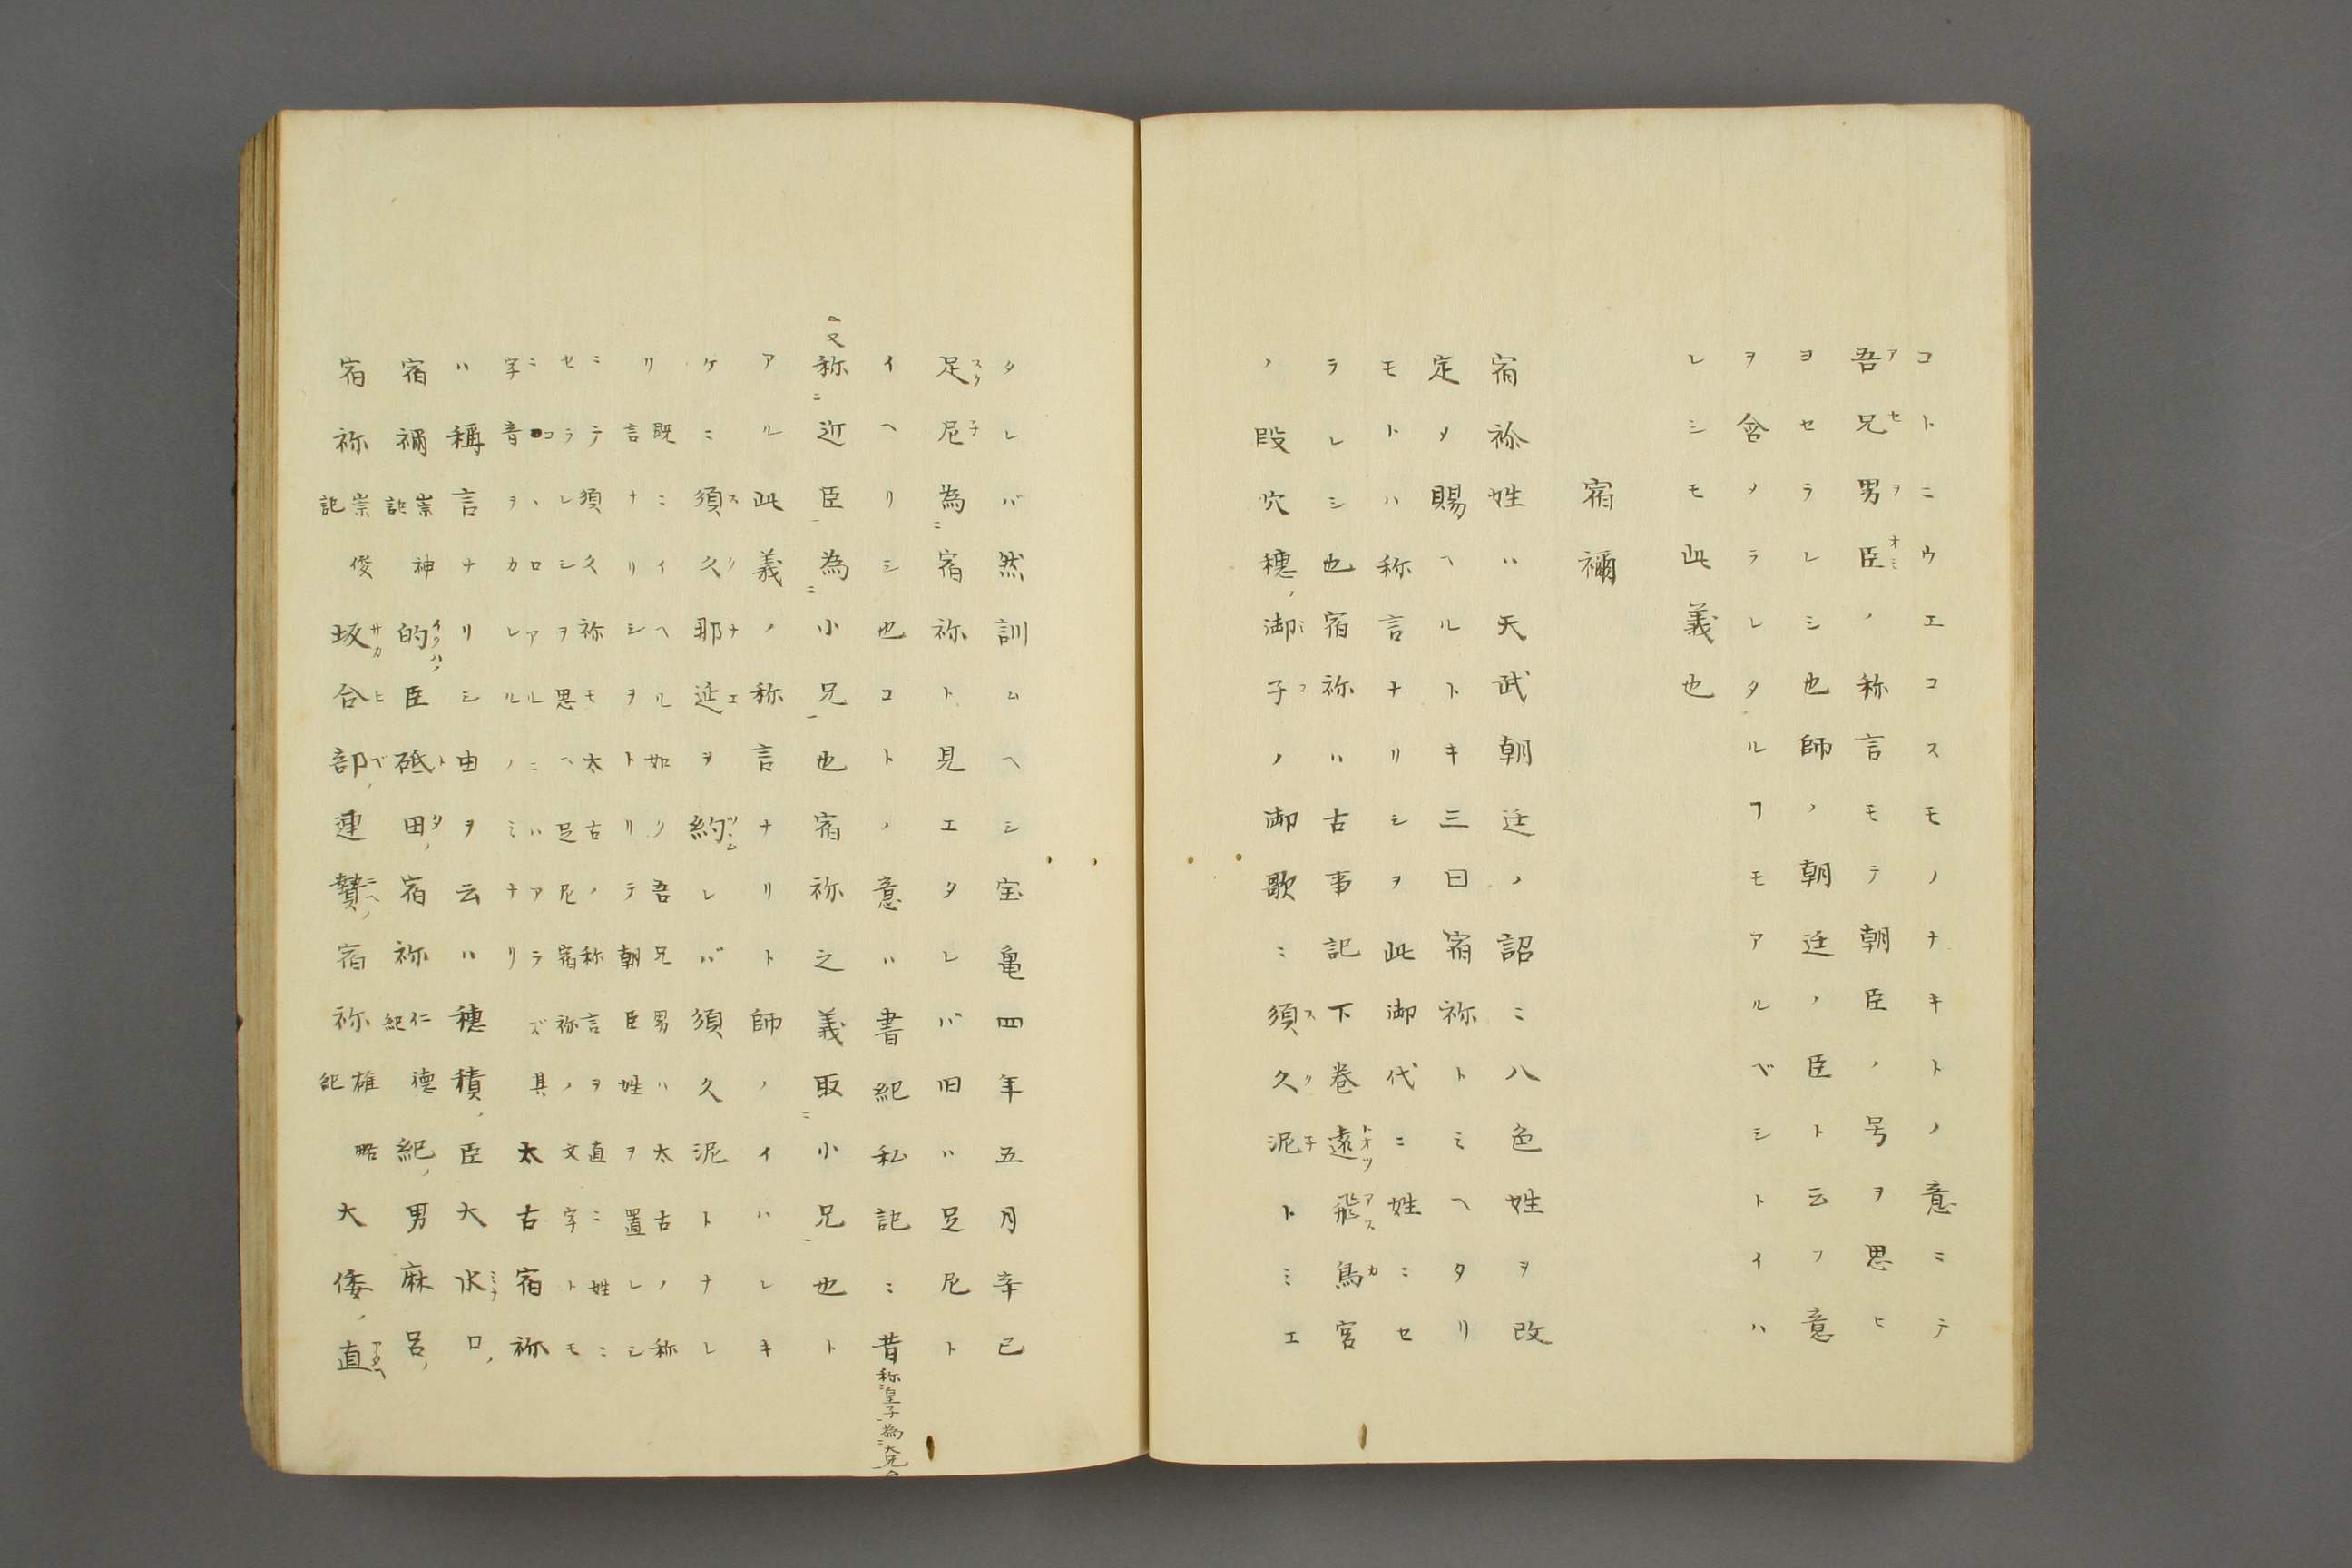 コトニウエコスモノナキトノ意ニテ
吾兄男臣ノ称言モテ朝臣ノ号ヲ思ヒ
ヨセラレシ也師ノ朝廷ノ臣ト云フ意
ヲ含メラレタルフモアルベシトイハ
レシモ此義也
宿禰
宿祢姓ハ天武朝廷ノ詔ニ八色姓ヲ改
定メ賜ヘルトキ三曰宿祢トミヘタリ
モトハ称言ナリシヲ此御代ニ姓ニセ
ラレシ也宿祢ハ古事記下巻遠飛鳥宮
ノ段穴穂ノ御子ノ御歌ニ須久泥トミエ
タレバ然訓ムヘシ宝亀四年五月辛巳
足尼為宿祢ト見エタレバ旧ハ足尼ト
イヘリシ也コトノ意ハ書紀私記ニ昔称皇子為大兄
又称近臣為小兄也宿祢之義取小兄也ト
アル此義ノ称言ナリト師ノイハレキ
ケニ須久那延ヲ約レバ須久泥トナレ
リ既ニイヘル如ク吾兄男ハ太古ノ称
言ナリシヲトリテ朝臣姓ヲ置レシ
ニテ須久祢モ太古ノ称言ヲ直ニ姓ニ
セラレシヲ思ヘ足尼宿祢ノ文字トモ
ニコヽロアルニハアラズ
字音ヲカレルノミナリ其太古宿祢
ハ稱言ナリシ由ヲ云ハ穂積ノ臣大水口ノ
宿禰崇神記的臣砥田ノ宿祢仁徳紀紀ノ男麻呂ノ
宿祢崇俊記坂合部ノ連贄ノ宿祢雄略紀大倭ノ直